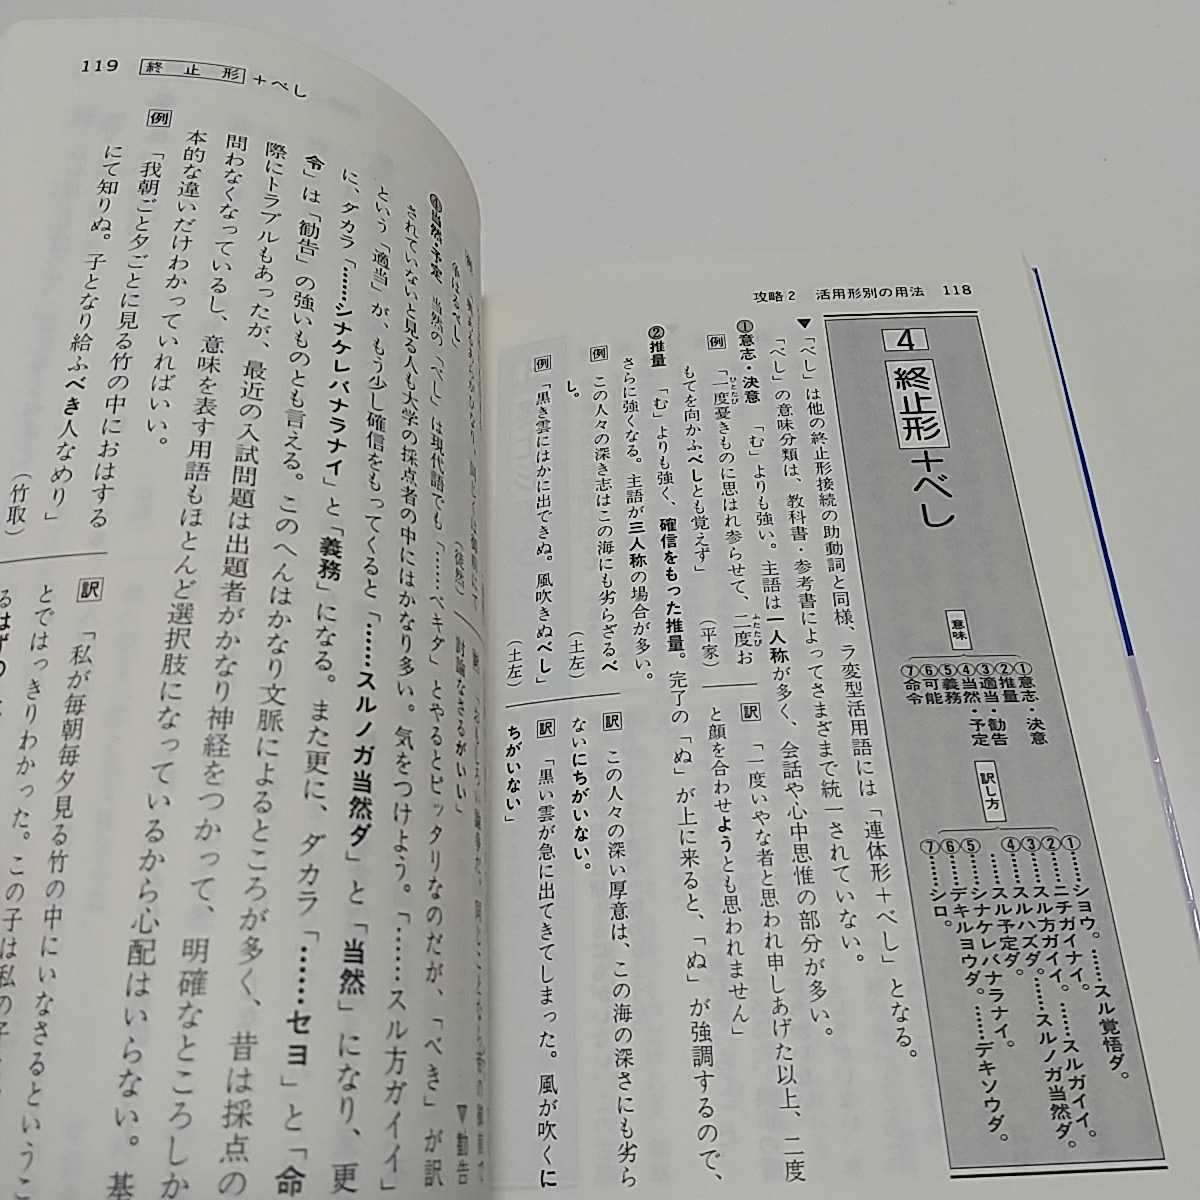 攻略2 活用形別の用法 118
4 終止形+べし
意味
①意志・決意
②推量
③適当・勧告
④当然・予定
⑤義務
⑥可能
⑦命令
訳し方
①……ショウ。……スル覚悟ダ。
②……ニチガイナイ。
③……スル方ガイイ。……スルガイイ。
④……スルハズダ。……スルノガ当然ダ。
……スル予定ダ。
⑤……シナケレバナラナイ。
⑥……デキルヨウダ。……デキソウダ。
⑦……シロ。
▼「べし」は他の終止形接続の助動詞と同様、ラ変型活用語には「連体形+べし」となる。
「べし」の意味分類は、教科書・参考書によってさまざまで統一されていない。
①意志・決意 「む」よりも強い。主語は一人称が多く、会話や心中思惟の部分が多い。
例 「一度憂きものに思はれ参らせて、二度お
ひとたび
ふたたび
もてを向かふべしとも覚えず」
(平家)
訳 「一度いやな者と思われ申しあげた以上、二度
と顔を合わせようとも思われません」
②推量 「む」よりも強く、確信をもった推量。完了の「ぬ」が上に来ると、「ぬ」が強調するので、
さらに強くなる。主語が三人称の場合が多い。
例 この人々の深き志はこの海にも劣らざるべ
し。
(土左)
訳 この人々の深い厚意は、この海の深さにも劣ら
ないにちがいない。
例 「黒き雲にはかに出できぬ。風吹きぬべし」
(土左)
訳 「黒い雲が急に出てきてしまった。風が吹くに
ちがいない」
119 終止形+べし
▼勧告
争はるべし」
(徒然)
討論なさるがいい」
④当然・予定 当然の「べし」は現代語でも「……ベキダ」とやるとピッタリなのだが、「べき」が訳
されていないと見る人も大学の採点者の中にはかなり多い。気をつけよう。「……スル方ガイイ」
という「適当」が、もう少し確信をもってくると「……スルノガ当然ダ」と「当然」になり、更
に、ダカラ「……シナケレバナラナイ」と「義務」になる。また更に、ダカラ「……セヨ」と「命
令」は「勧告」の強いものとも言える。このへんはかなり文脈によるところが多く、昔は採点の
際にトラブルもあったが、最近の入試問題は出題者がかなり神経をつかって、明確なところしか
問わなくなっているし、意味を表す用語もほとんど選択肢になっているから心配はいらない。基
本的な違いだけわかっていればいい。
例 「我朝ごと夕ごとに見る竹の中におはする
にて知りぬ。子となり給ふべき人なめり」
(竹取)
訳 「私が毎朝毎夕見る竹の中にいなさるというこ
とではっきりわかった。この子は私の子
るはずの